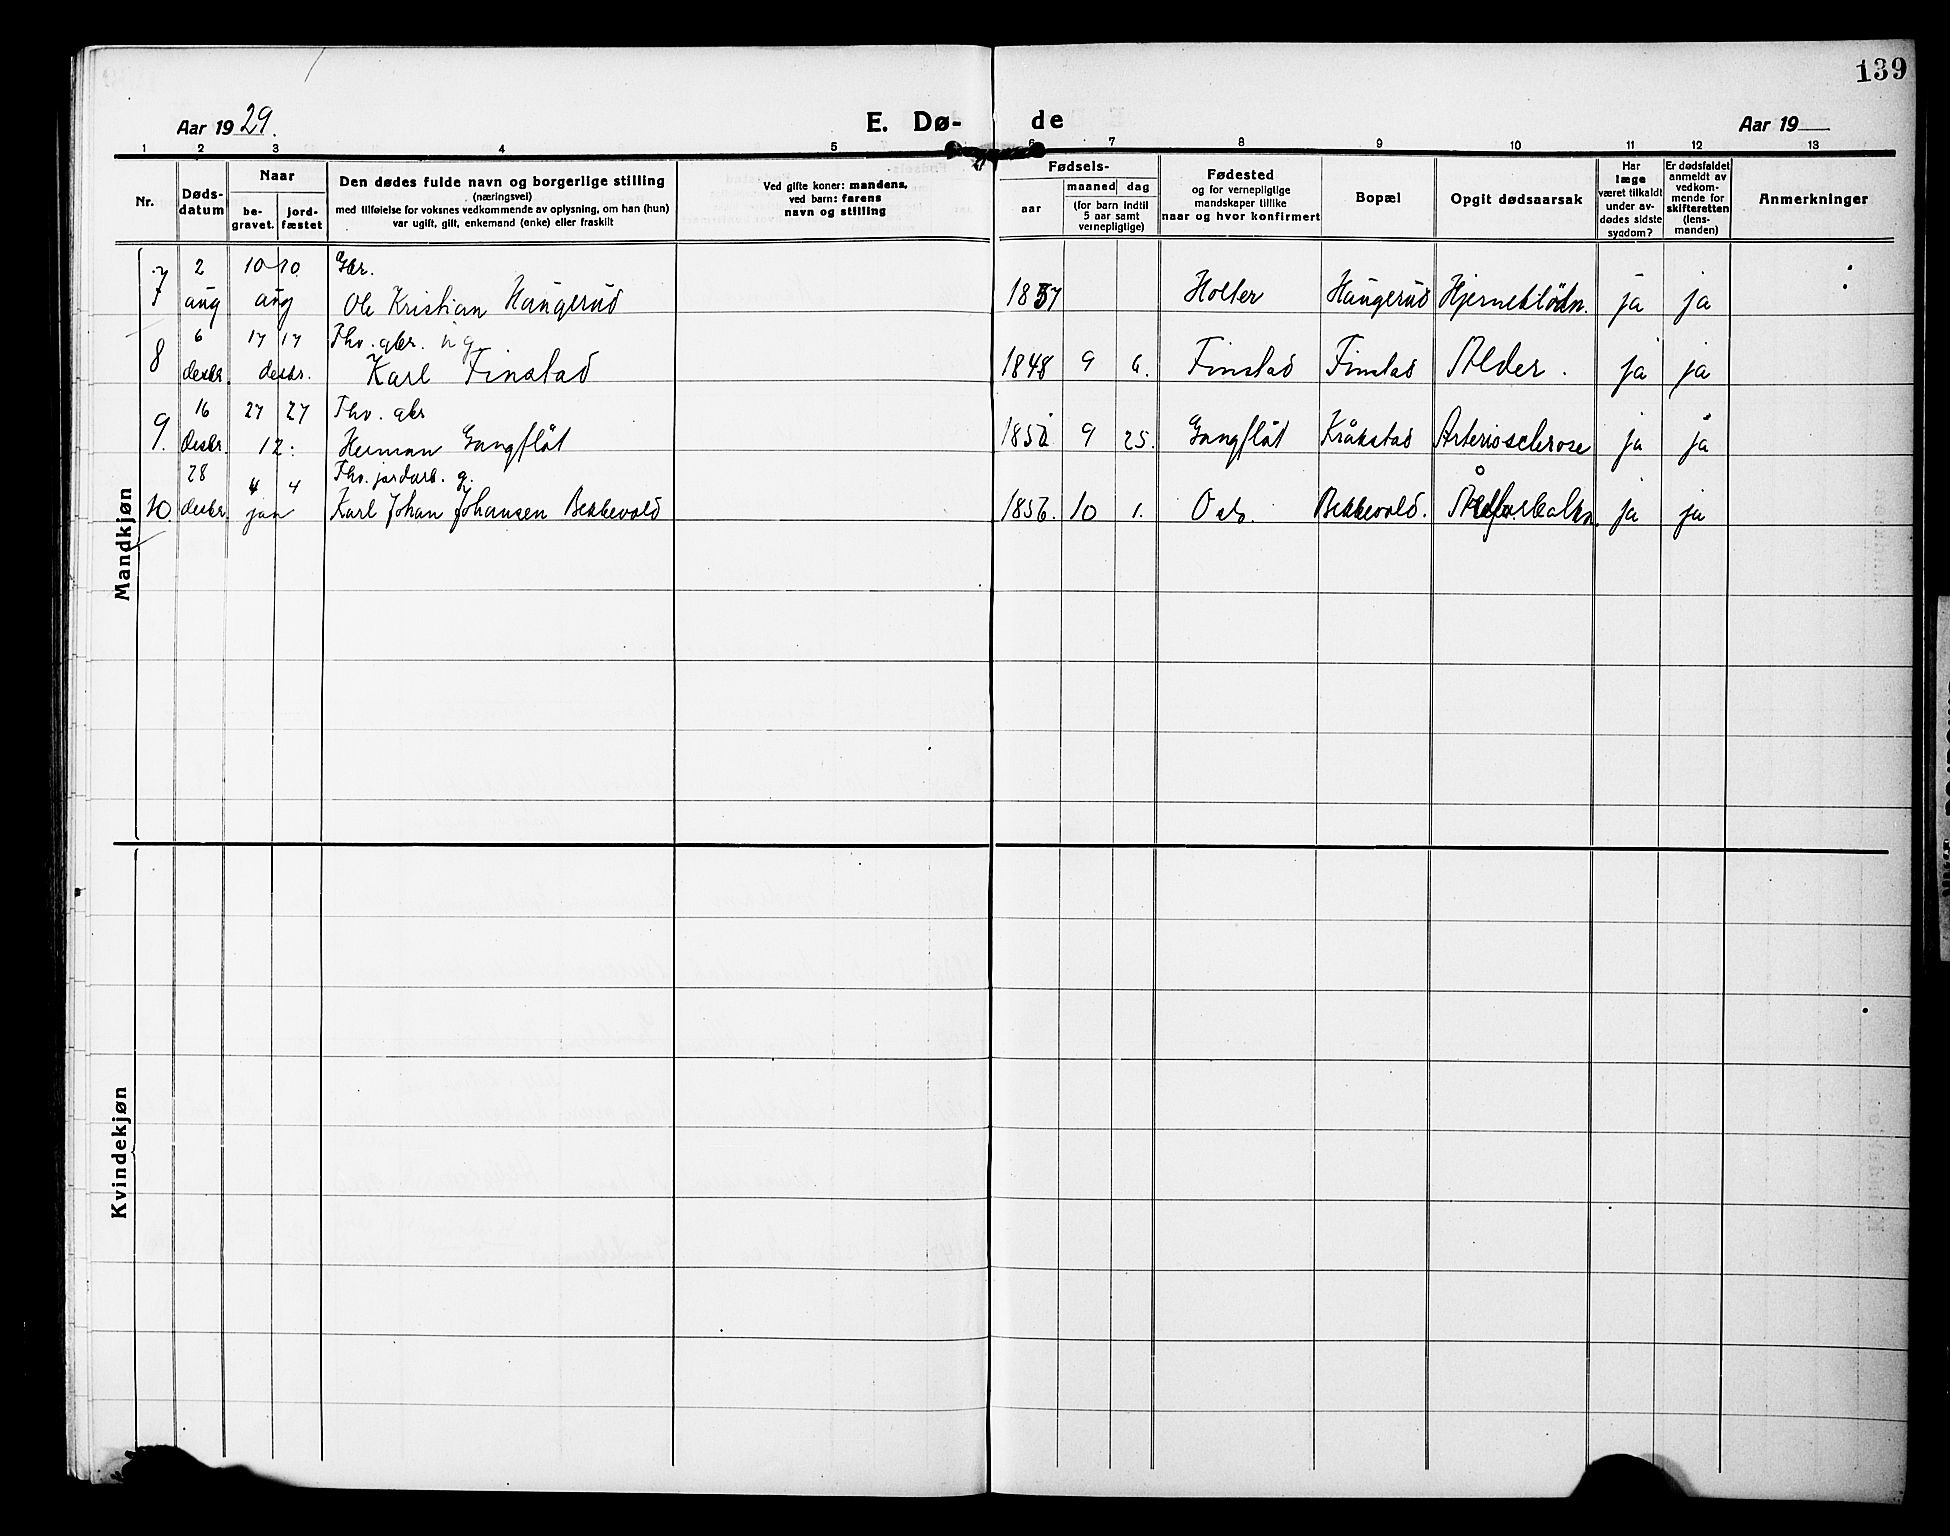 139
Aar 1929.
E. Dø-
de
Aar 19
1 2 3 4 5 6 7 8 9 10 11 12 13
Nr.
Døds-
datum
Naar
be-
gravet.
jord-
fæstet
Den dødes fulde navn og borgerlige stilling
(næringsvei)
med tilføielse for voksnes vedkommende av oplysning, om han (hun)
var ugift, gift, enkemand (enke) eller fraskilt
Ved gifte koner: mandens,
ved barn: farens
navn og stilling
Fødsels-
aar
maaned
dag
(for barn indtil
5 aar samt
vernepligtige)
Fødested
og for vernepligtige
mandskaper tillike
naar og hvor konfirmert
Bopæl
Opgit dødsaarsak
Har
læge
været tilkaldt
under av-
dødes sidste
sygdom?
Er dødsfaldet
anmeldt av
vedkom-
mende for
skifteretten
(lens-
manden)
Anmerkninger
Mandkjøn
7 2 10 10 Gbr.
aug aug Ole Kristian Haugerud 1857 Holter Haugerud Hjernebløtn. ja ja
8 6 17 17 Fhv. gbr. ug
desbr. desbr. Karl Finstad 1848 9 6. Finstad Finstad Alder. ja ja
9. 16 27 27 Fhv. gbr
desbr. 12. Herman Gangfløt 9 25. Gangfløt Kråkstad Arteriosclerose ja ja
28 4 4 Fhv. jordarb. g.
10. desbr. jan Karl Johan Johansen Bekkevold 1856. 10 1. Oslo. Bekkevold. ja ja
Kvindekjøn